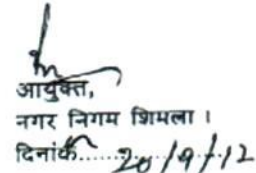 आयुक्त,
नगर निगम शिमला ।
दिनांक.....20/9/12